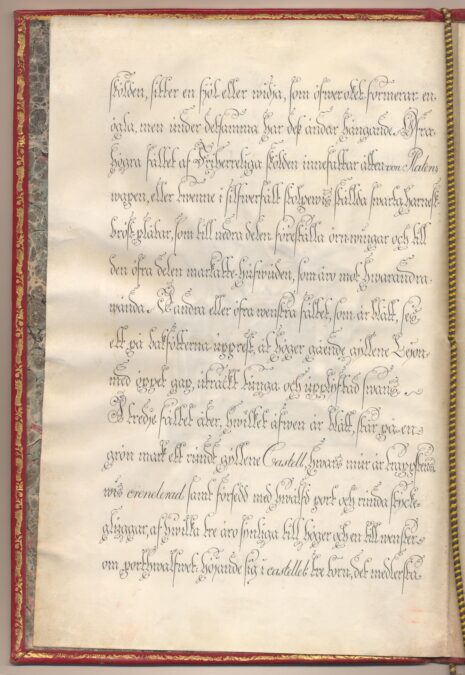 skölden, sitter en fjöl eller widja, som öfwer ökt formerar en
ögla, men under detsamma har des ändar hängande. Öfra
högra fältet af Friherreliga skölden innefattar ätten von Platens
wapen, eller twenne i silfwerfält stolpewis ställda swarta harnesk
bröst plåtar, som till nedra delen föreställa örn wingar och till
den öfra delen markatte hufwuden, som äro mot hwarandra
wända. I andra eller öfra wenstra fältet, som är blått, ses
ett på bakfötterna uppräst, åt höger gående gyllene Leyon
med öppet gap, uträckt tunga och upplyftad swans.
I tredje fältet åter, hwilket äfwen är blått, står på en
grön mark ett rundt gyllene Castell, hwars mur är
wis crenelerad samt försedd med hwälfd port och runda styck-
gluggar, af hwilka tre äro synliga till höger och en till wenster
om porthwalfwet: höjande sig i castellet tre torn, det medlersta